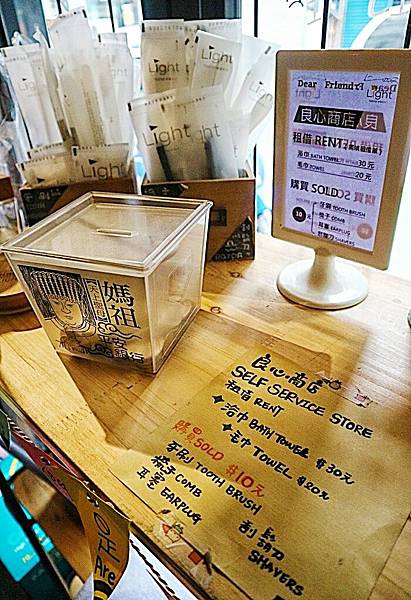 Light
Light
Light
Dear Friend
Light
良心商店
租借 RENT
浴巾 BATH TOWEL 30元
毛巾 TOWEL 20元
購買 SOLD
10
牙刷 TOOTH BRUSH
梳子 COMB
耳塞 EARPLUG
刮鬍刀 SHAVERS
媽祖
平安
銀行
良心商店
SELF SERVICE STORE
租借 RENT
浴巾 BATH TOWEL $30元
毛巾 TOWEL $20元
購買 SOLD $10元
牙刷 TOOTH BRUSH
梳子 COMB
耳塞 EARPLUG
刮鬍刀
SHAVERS
Are